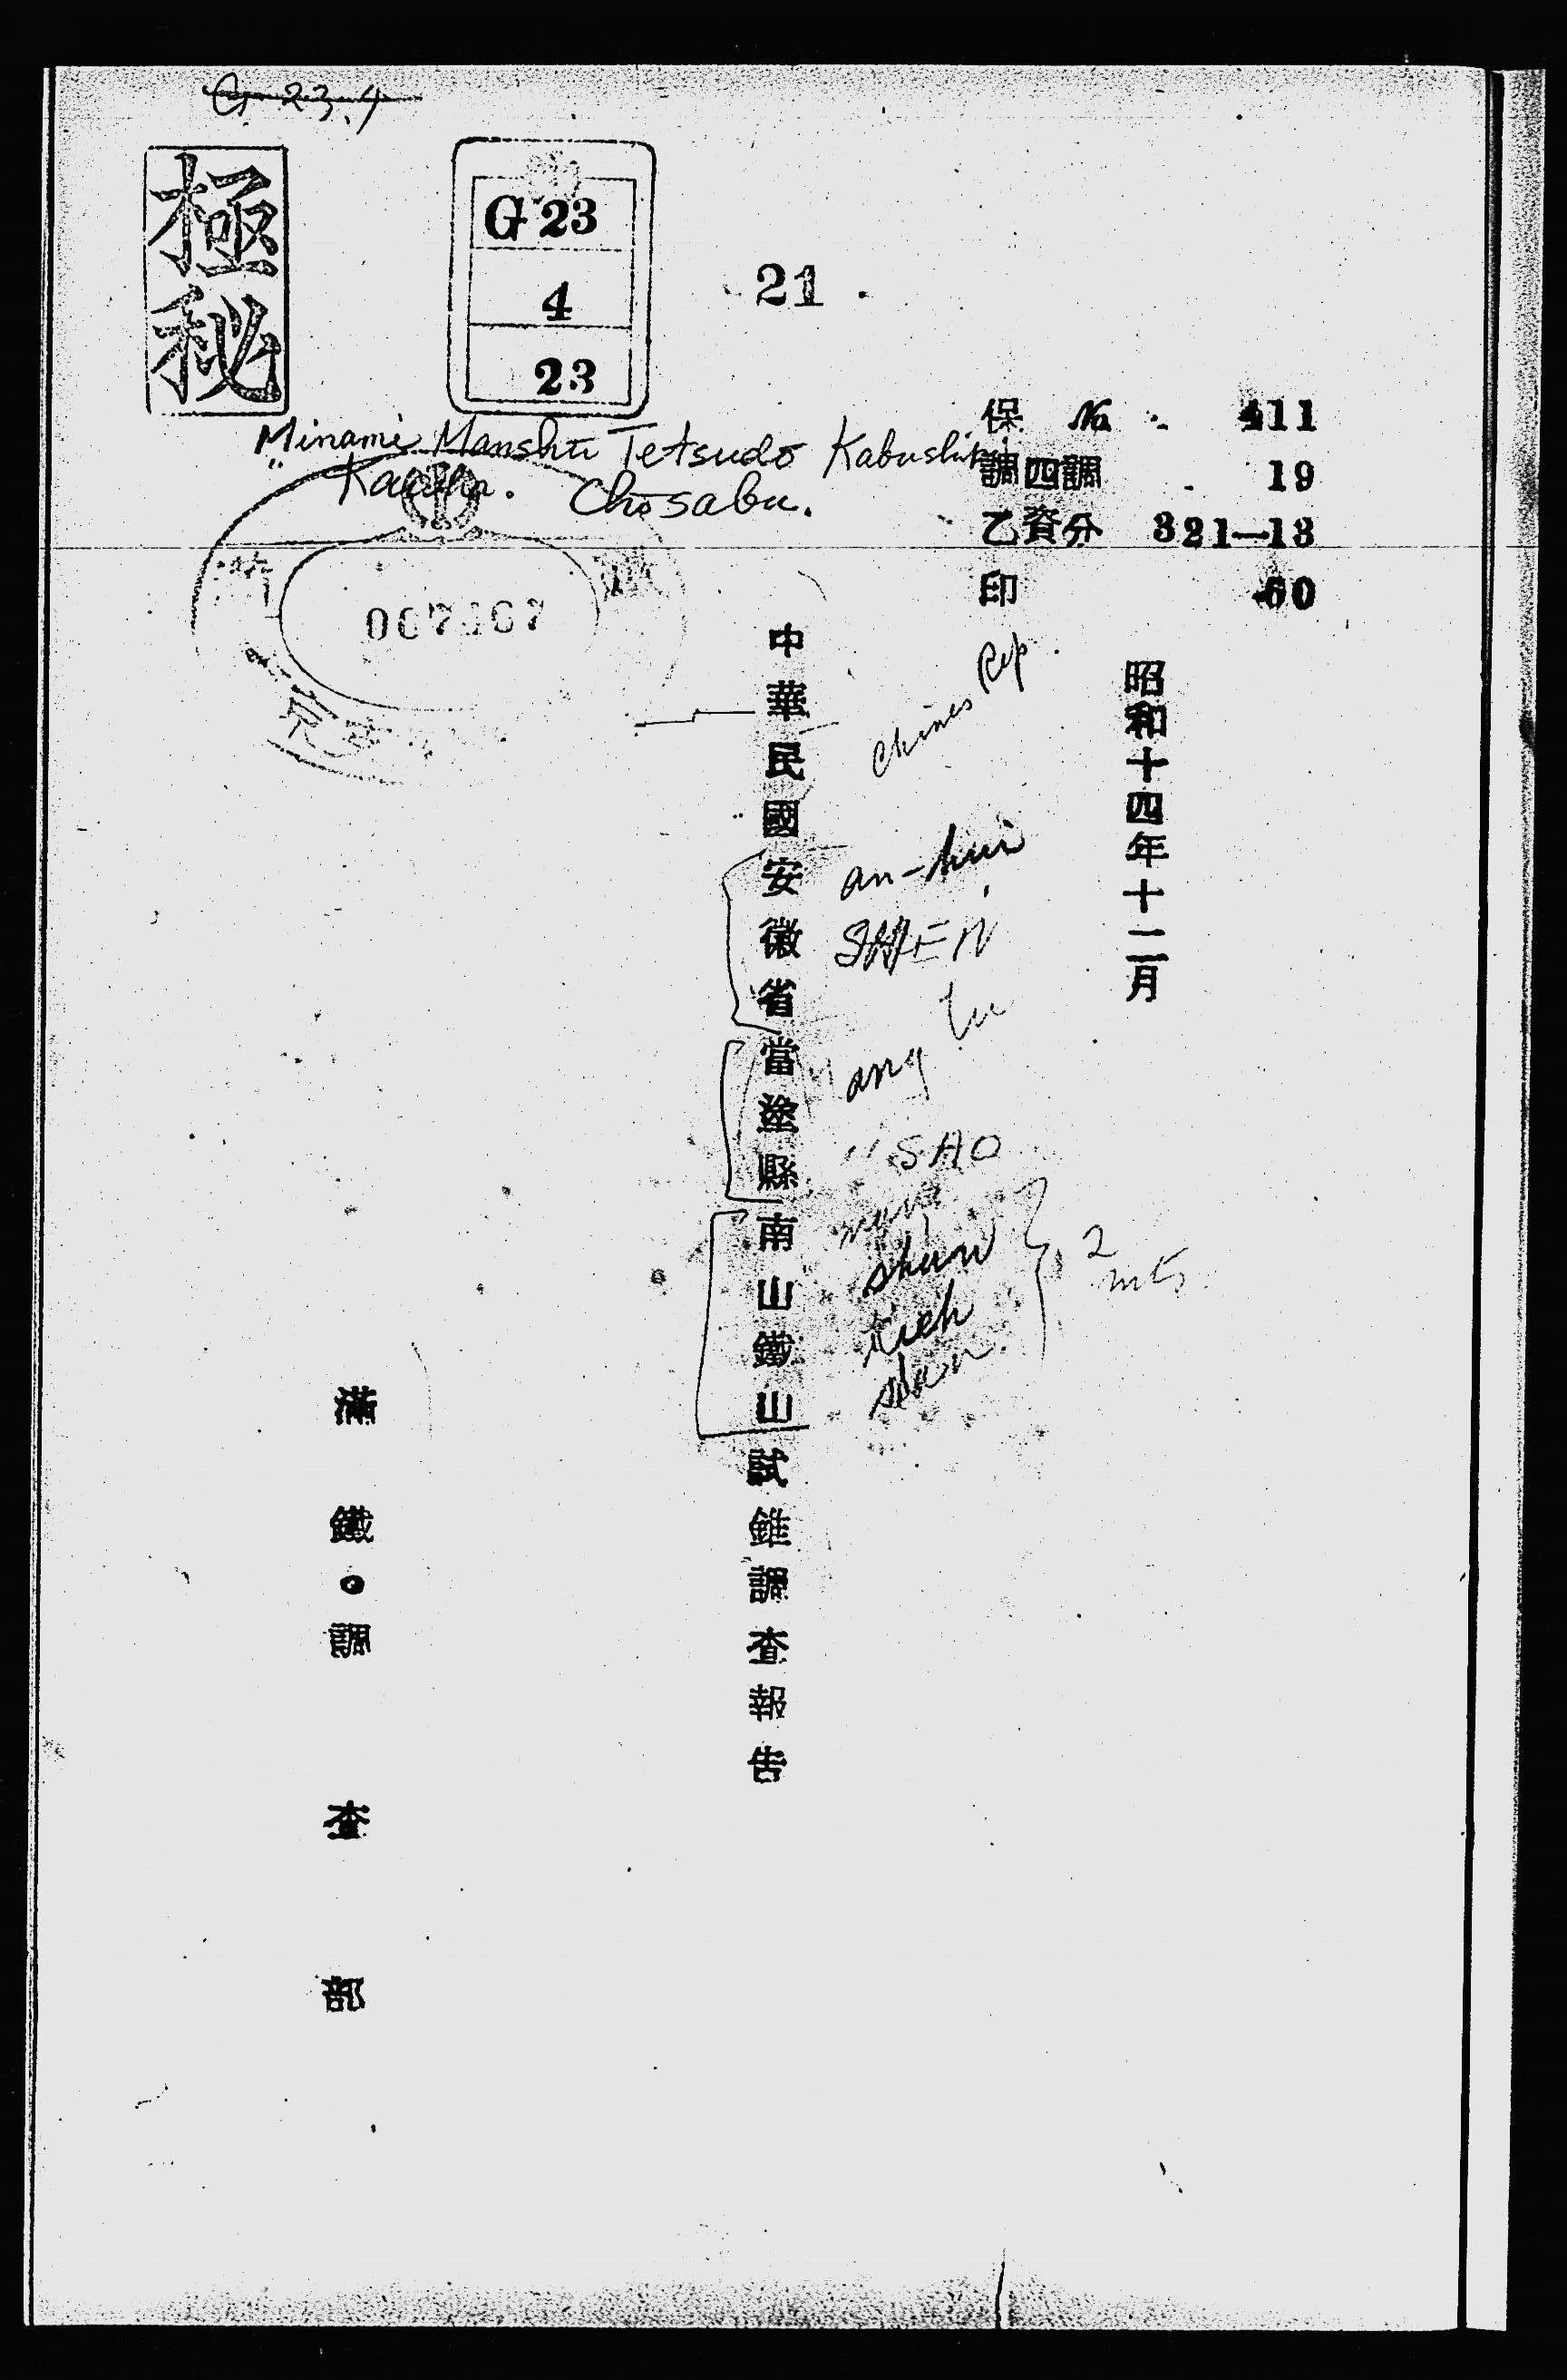 G 23.4
極秘
G 23
4
23
21
保 № 411
調四調 19
乙資分 321—13
印 60
Minami Manshū Tetsudō Kabushiki
Kaisha. Chōsabu.
昭和十四年十二月
中華民國安徽省當塗縣南山鐵山試錐調査報告
Chines Rep.
an-hui
SHEN
ang
tu
SAO
nan
shan
tieh
shan
2
mts
滿鐵。調査部